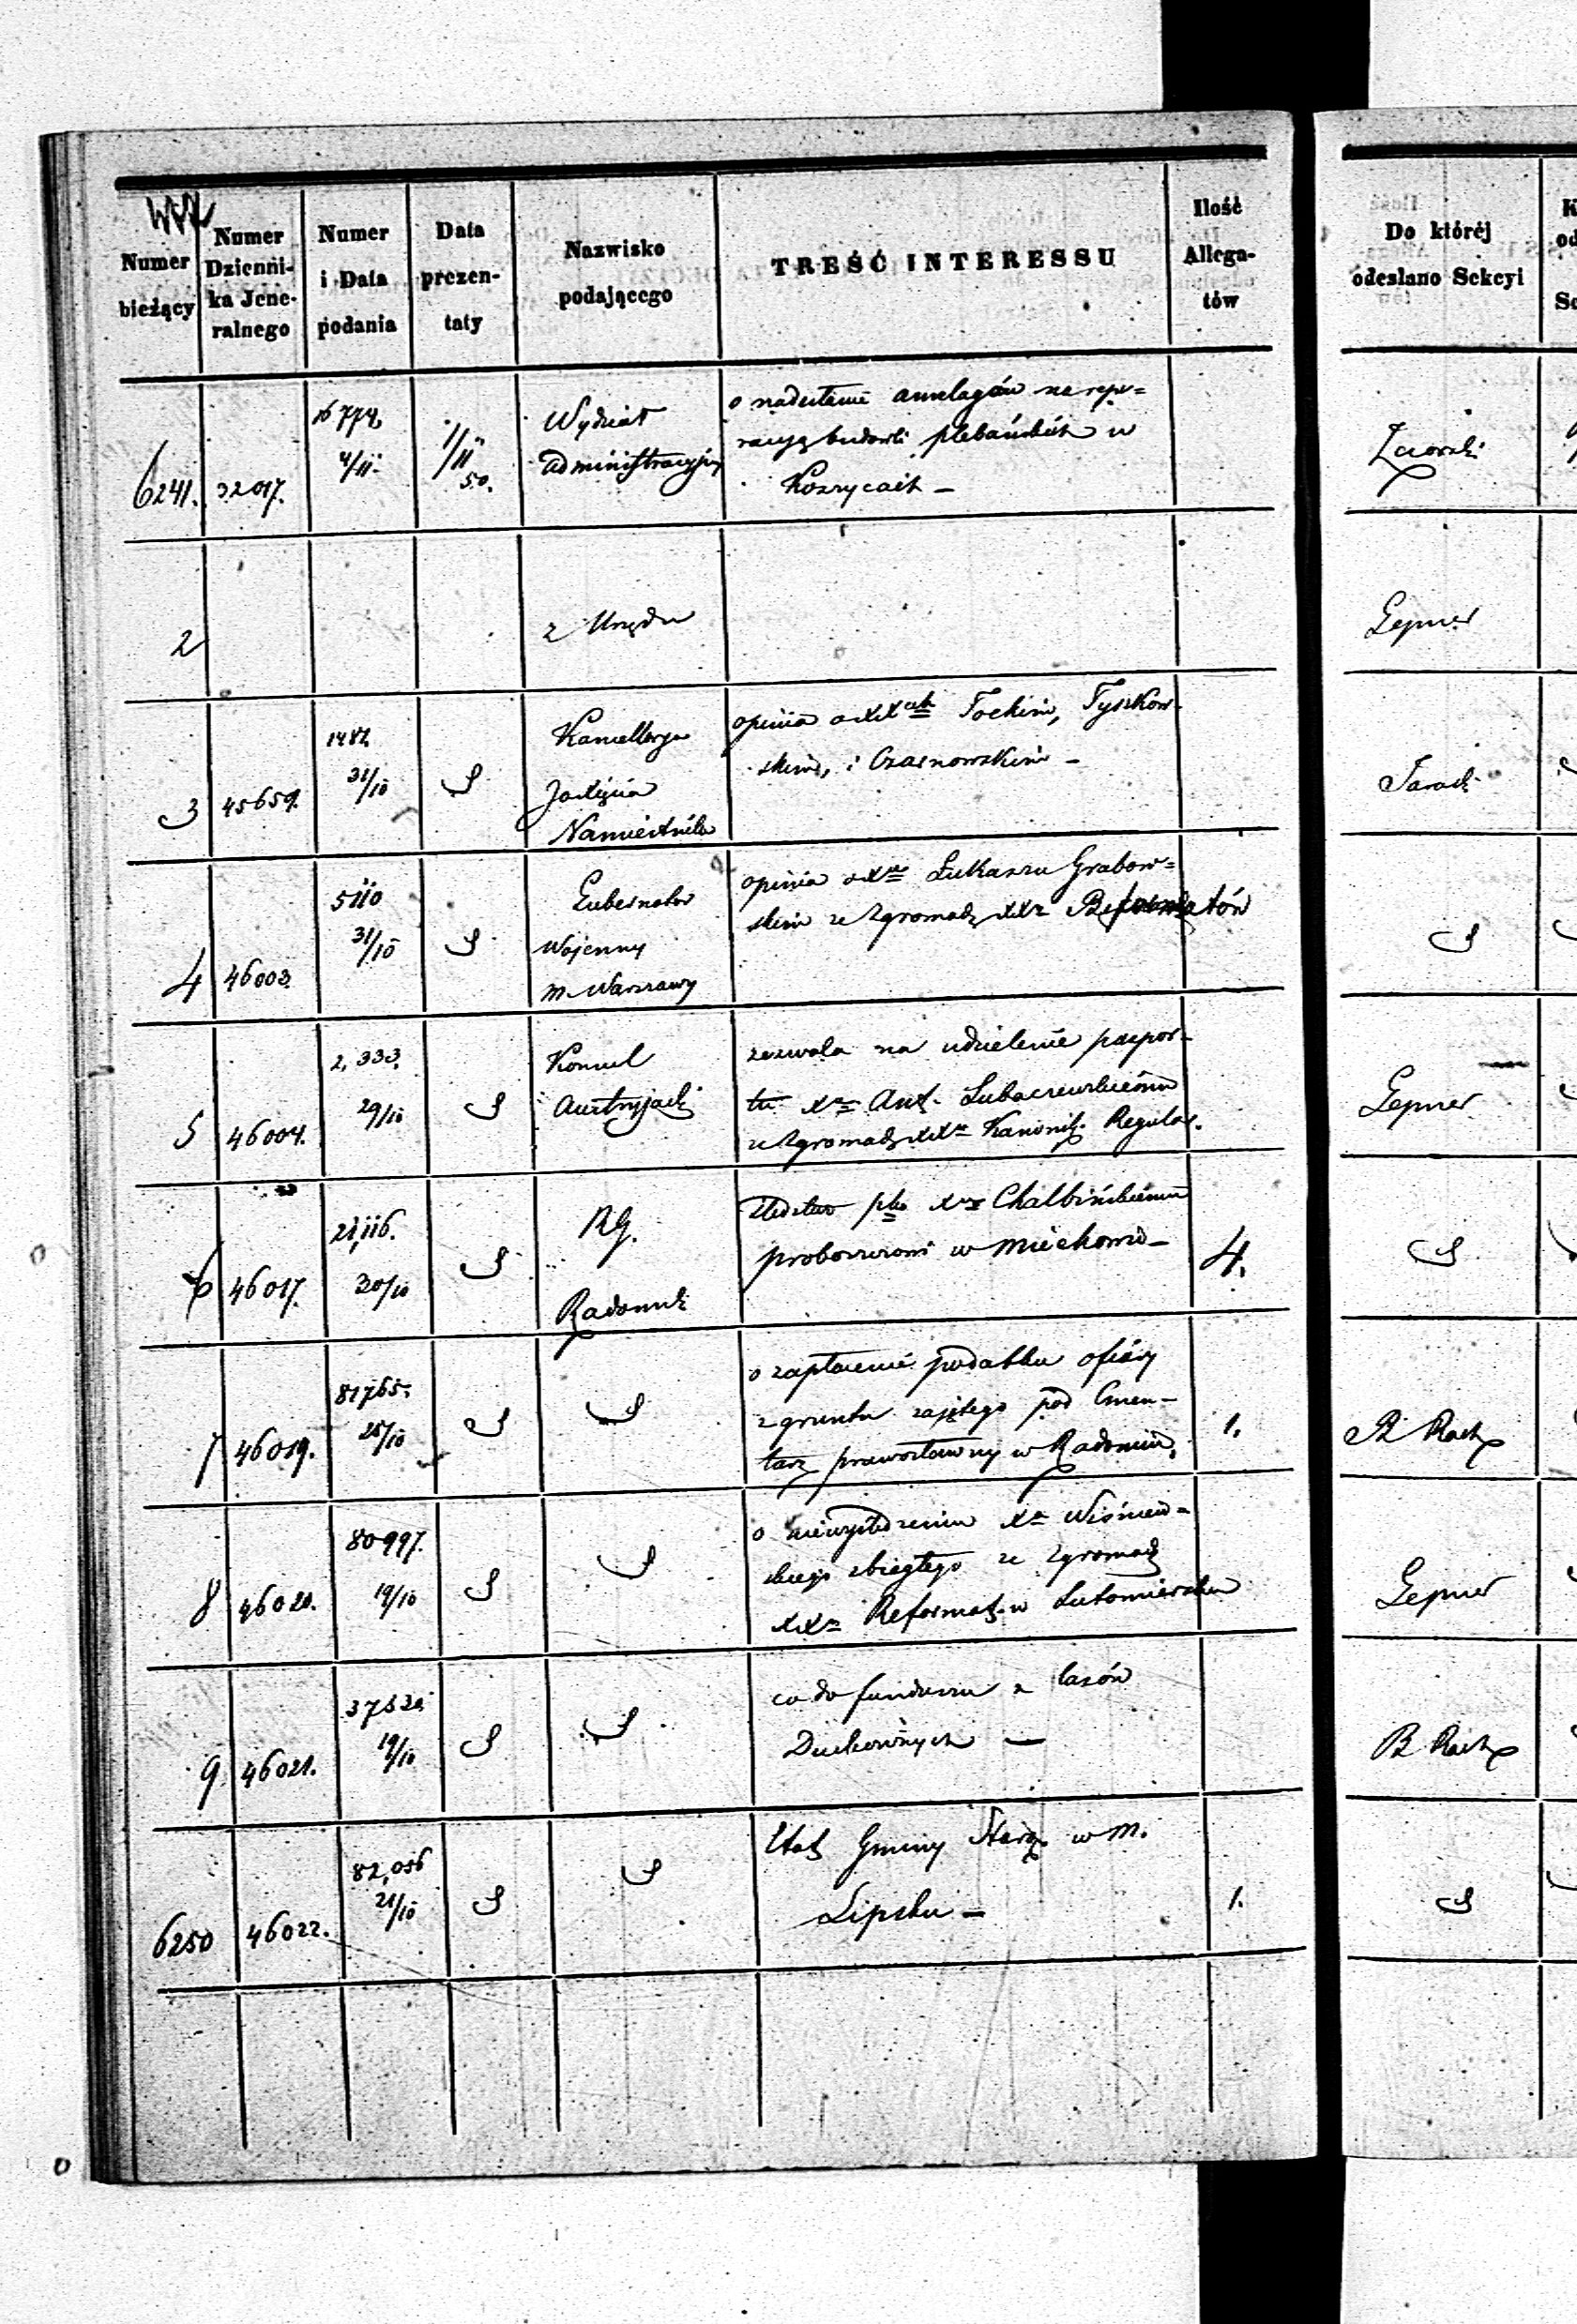 Numer bieżący
Numer Dzienni-ka Jene-ralnego
Numer i Data podania
Data prezen-taty
Nazwisko podającego
TREŚĆ INTERESSU
Ilość Allega-tów
Do któréj odesłano Sekcyi
6241. 32017.
4/11
1/11 50.
Wydział
administracyjny
o nadesłanie anszlagów na repe=
racyą budowli plebańskich w
Koszycach –
2
z Urzędu
Lepner
3 45659.
1487
31/10
Kancellarya
Jaśnie
Namiestnika
opinia o XX
Tyszkow-
skim, i Czasnowskim –
4 46003.
5110
31/10
Gubernator
Wojenny
m. Warszawy
opinia o Xdzu Łukaszu Grabow=
skim ze Zgromadz XXy Reformatów
5 46004.
2,333.
29/10
Konsul
Austryjacki
zezwala na udzielenie paspor-
tu Xdzu Ant. Lubaczewskiemu
ze Zgromadz XXy Kanonik. Regular.
Lepner
6 46017.
21,116.
30/10
RG.
Radomsk
śledztwo pko Xdzu Chałbińskiemu
proboszczowi w Miechowie –
4.
7 46019.
81765.
25/10
o zapłacenie podatku ofiary
z gruntu zajętego pod Cmen-
tarz prawosławny w Radomiu.
1.
8 46020.
80997.
19/10
o niewyśledzeniu Xa Wiśniew=
skiego zbiegłego ze Zgromadz
XXy Reformat. w Lutomiersku
Lepner
9 46021.
19/10
co do funduszu z lasów
Duchownych –
6250 46022.
82,056
21/10
Etat Gminy Staroz. w m.
Lipsku –
1.